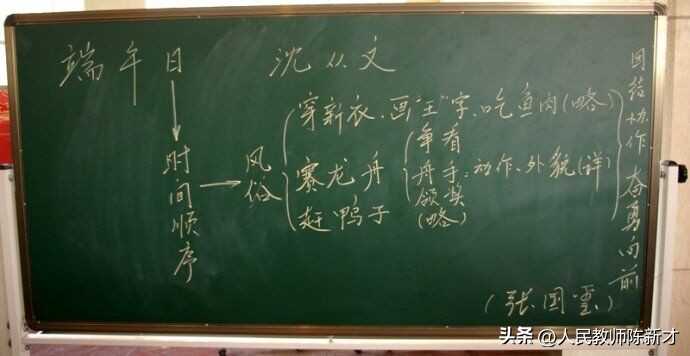 端午日 沈从文
时间顺序
风俗
穿新衣、画"王"字、吃鱼肉(略)
赛龙舟
争看
舟手:动作、外貌(详)
领奖
(略)
赶鸭子
团结协作 奋勇向前
(张国玺)
头条 @人民教师陈新才